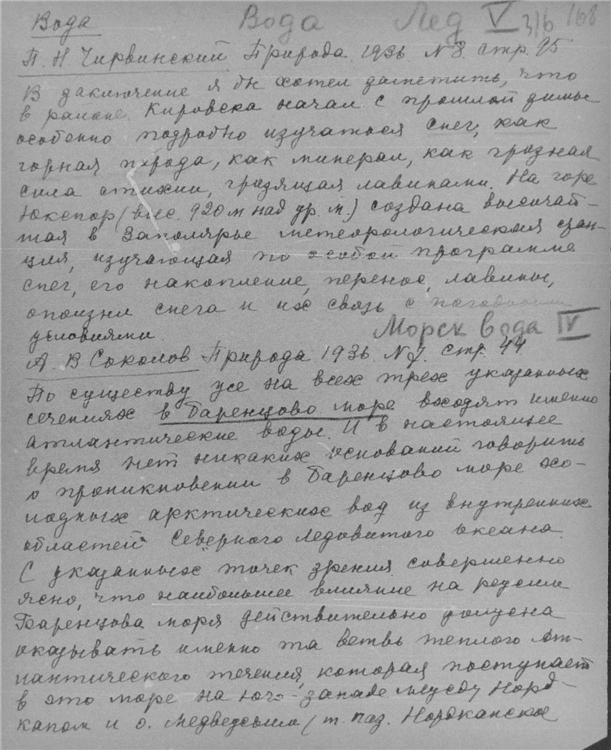 Вода Вода Лед V 316 168
П. Н Чирвинский Природа 1936 N 8. стр. 95
В заключение я бы хотел заметить, что
в районе Кировска начал с прошлой зимы
особенно подробно изучаться снег, как
горная порода, как минерал, как грозная
сила стихии, грозящая лавинами. На горе
Юкспор (выс. 920 м над ур. м.) создана высочай-
шая в Заполярье метеорологическая стан-
ция, изучающая по особой программе
снег, его накопление, перенос, лавины,
оползни снега и их связь с погодными
условиями.
Морск вода IV
А. В Соколов Природа 1936. N стр. 44
По существу уже на всех трех указанных
сечениях в Баренцово море входят именно
атлантические воды. И в настоящее
время нет никаких оснований говорить
о проникновении в Баренцово море хо-
лодных арктических вод из внутренних
областей Северного Ледовитого океана.
С указанных точек зрения совершенно
ясно, что наибольшее влияние на режим
Баренцова моря действительно должна
оказывать именно та ветвь теплого Ат-
лантического течения, которая поступает
в это море на юго-западе между Норд-
капом и о. Медвежьим (т. наз. Нордкапское